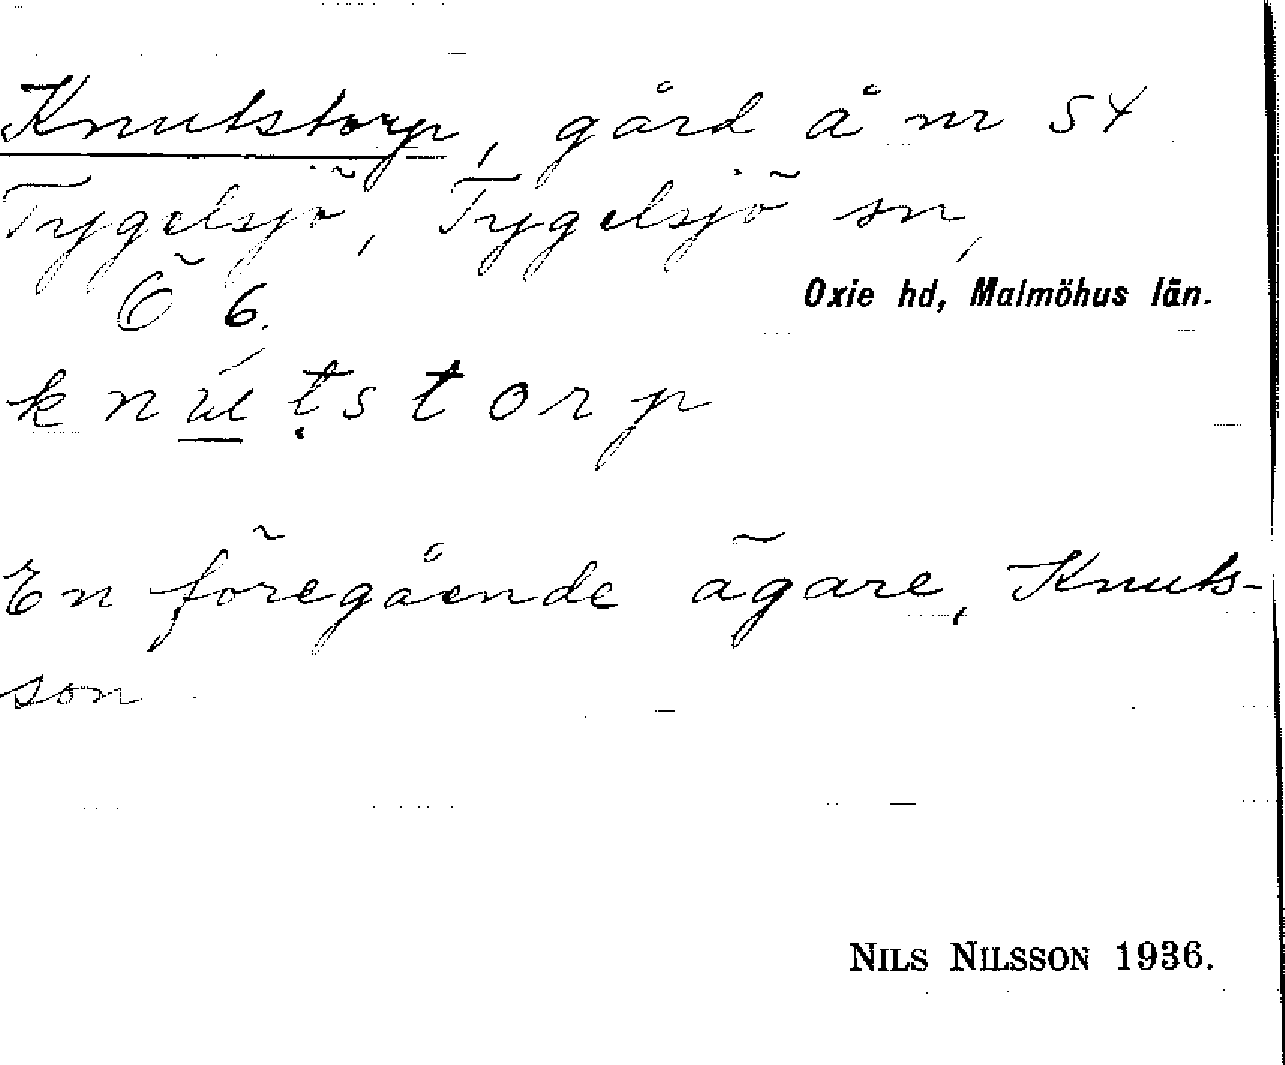 Knutstorp, gård å nr 54
Tygelsjö, Tygelsjö sn,
Ö 6.
Oxie hd, Malmöhus län.
knú̲ṭstorp
En föregående ägare, Knuts-
son
NILS NILSSON 1936.